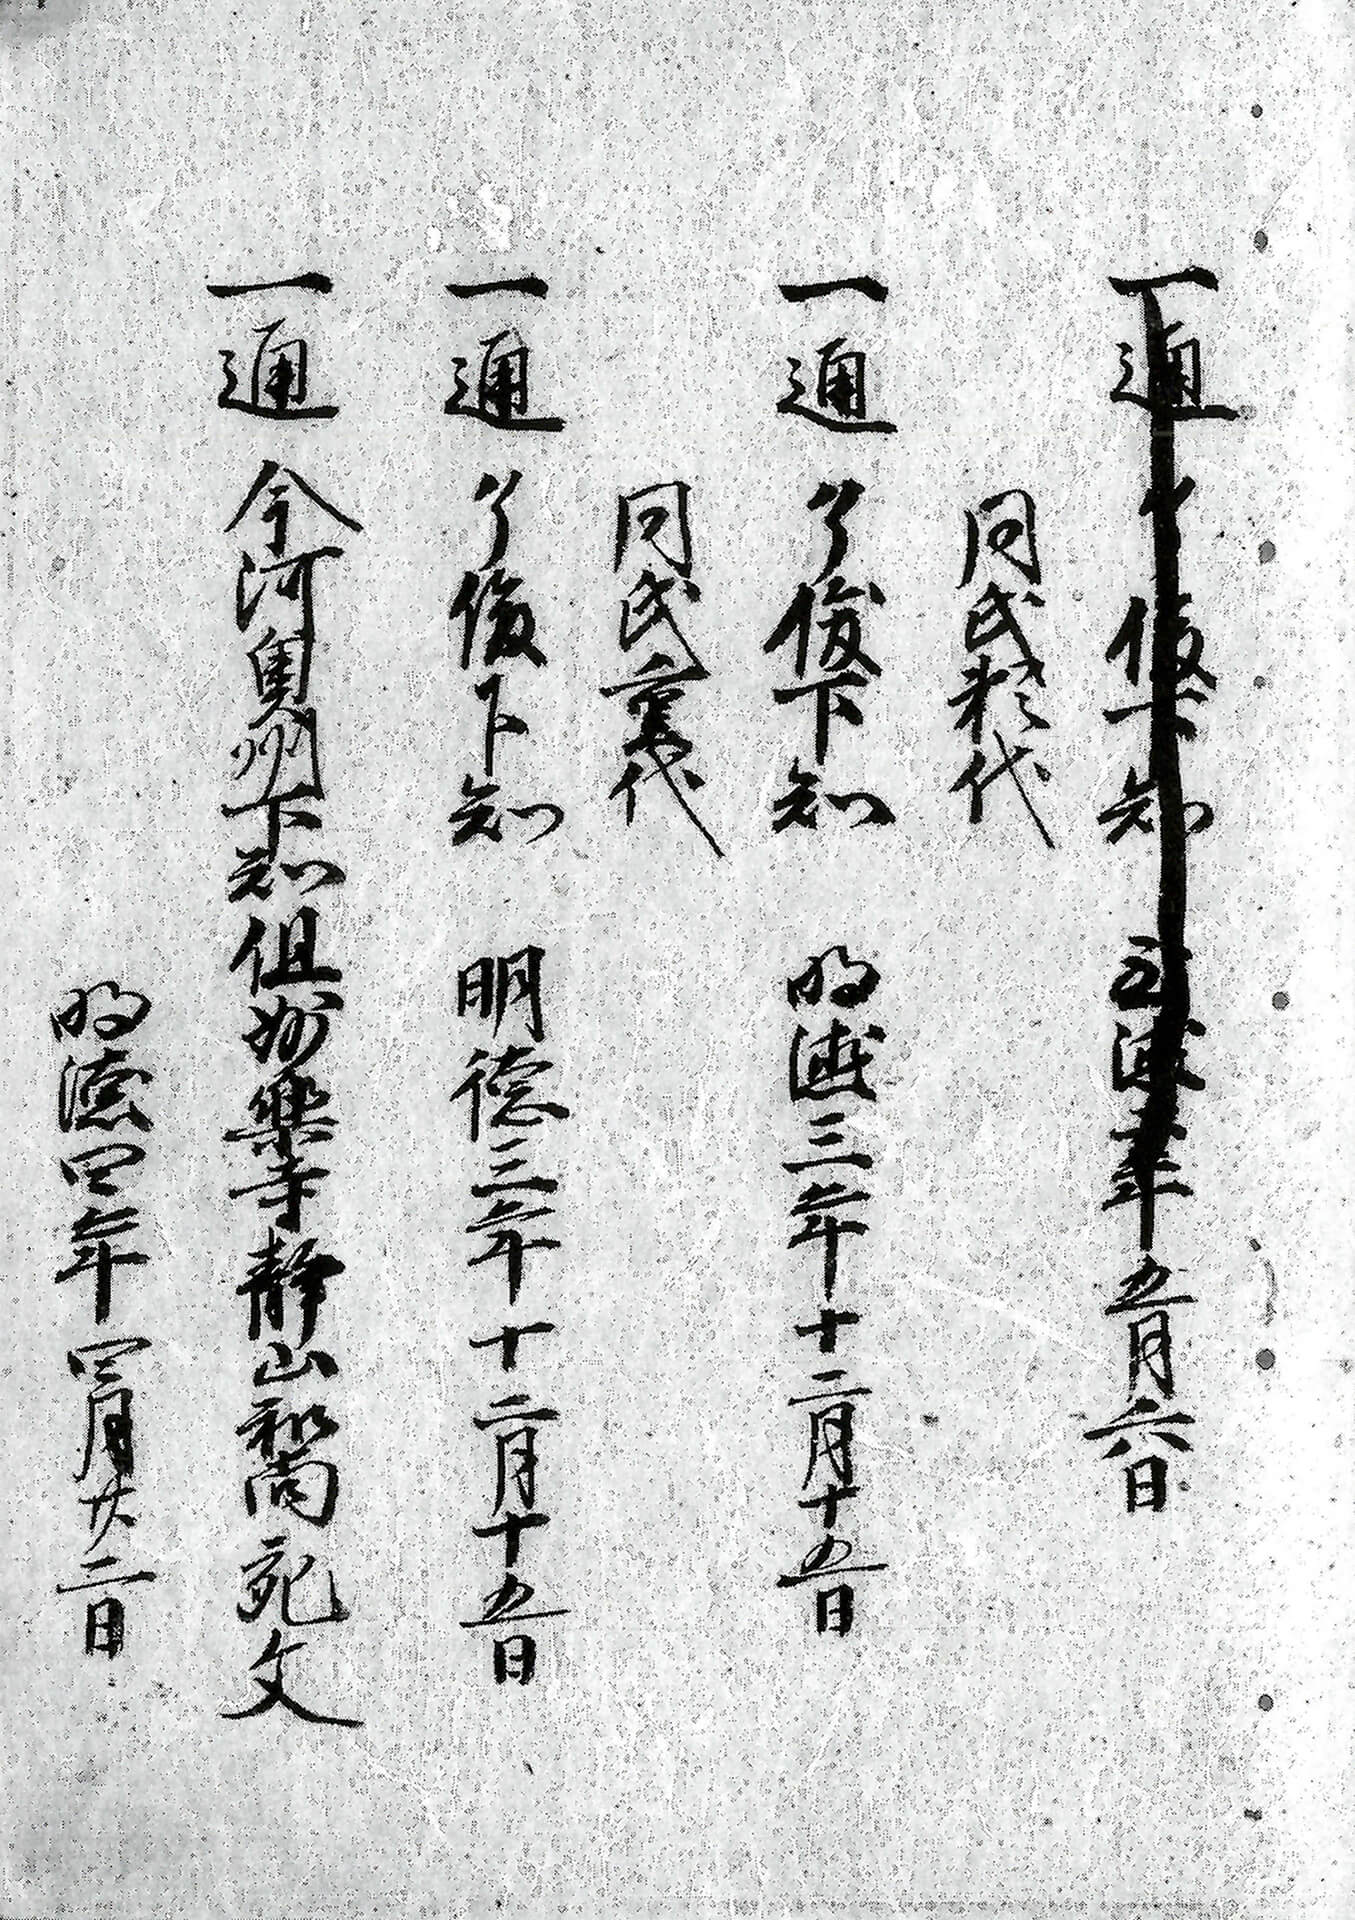 一通 了俊下知 至徳貳年五月六日
同氏稜代
一通 了俊下知 明徳三年十二月十五日
同氏重代
一通 了俊下知 明徳三年十二月十五日
一通 今河奥州下知但州楽寺静山和尚宛文
明徳四年四月廿二日